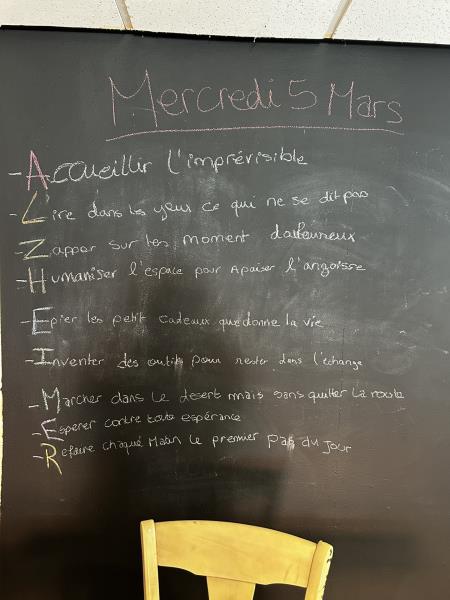 Mercredi 5 Mars
- Accueillir l'imprévisible
- Lire dans les yeux ce qui ne se dit pas
- Zapper sur les moment douloureux
- Humaniser l'espace pour Apaiser l'angoisse
- Epier les petit cadeaux que donne la vie
- Inventer des outils pour rester dans l'échange
- Marcher dans le désert mais sans quitter la route
- Esperer contre toute espérance
- Refaire chaque Matin le premier pas du Jour